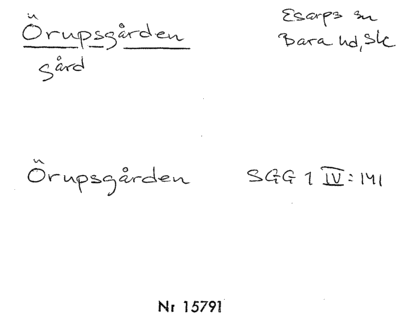 Örupsgården Esarps sn
gård Bara hd, Sk
Örupsgården SGG 1 IV: 141
Nr 15791